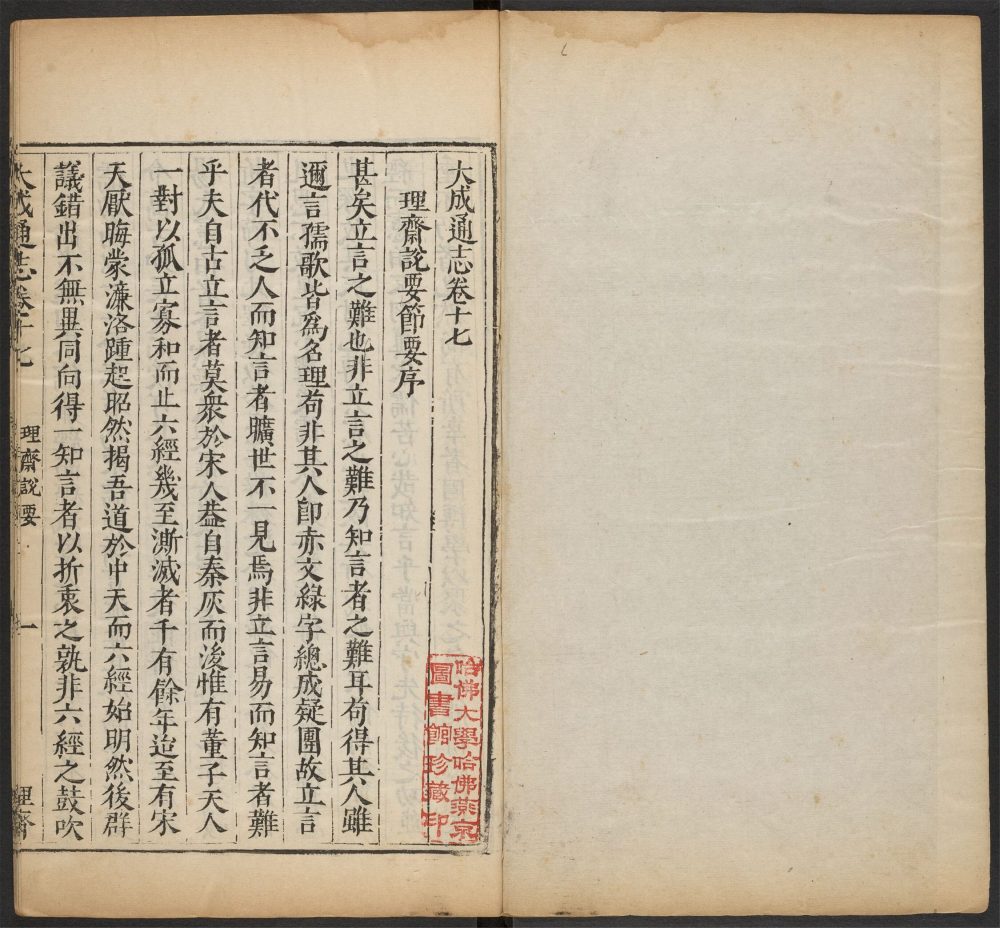 大成通志卷十七
理齋說要節要序
甚矣立言之難也非立言之難乃知言者之難耳苟得其人雖
邇言孺歌皆爲名理苟非其人卽赤文綠字總成疑團故立言
者代不乏人而知言者曠世不一見焉非立言易而知言者難
乎夫自古立言者莫衆於宋人葢自秦灰而後惟有董子天人
一對以孤立寡和而止六經幾至澌滅者千有餘年迨至有宋
天厭晦蒙濂洛踵起昭然揭吾道於中天而六經始明然後群
議錯出不無異同向得一知言者以折衷之孰非六經之鼓吹
大成通志卷十七
理齋說要
一
理齋
哈佛大學哈佛燕京
圖書館珍藏印